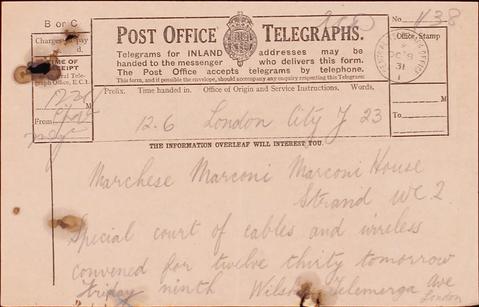 B or C
No. 438
POST OFFICE TELEGRAPHS.
Charges to pay
Office Stamp
Telegrams for INLAND addresses may be
handed to the messenger who delivers this form.
The Post Office accepts telegrams by telephone.
This form, and if possible the envelope, should accompany any enquiry respecting this Telegram.
TIME OF
RECEIPT
Central Tele-
graph Office, E.C.1.
DE 8
31
Prefix. Time handed in. Office of Origin and Service Instructions. Words.
M
From
M
To
12.6 London City Y 23
THE INFORMATION OVERLEAF WILL INTEREST YOU.
Marchese Marconi Marconi House
Strand WC2
Special court of cables and wireless
convened for twelve thirty tomorrow
Friday ninth Telemerga Ave
London